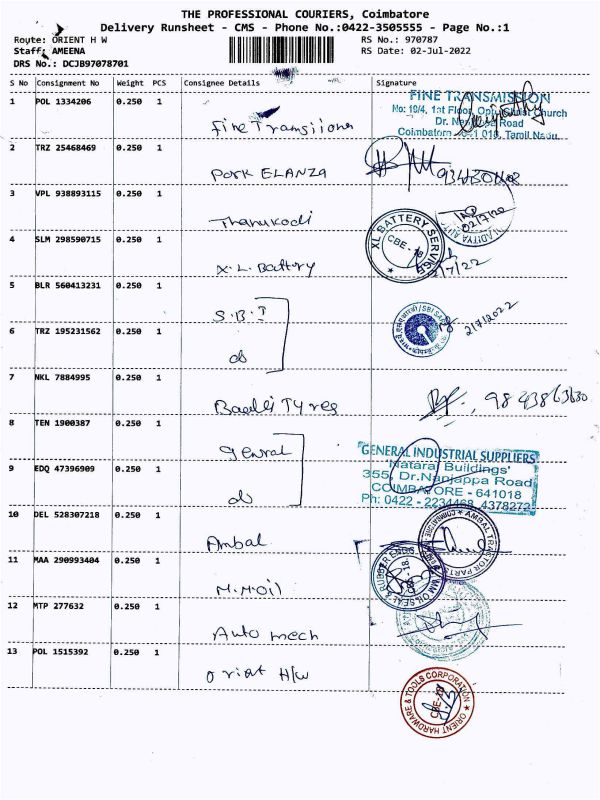 THE PROFESSIONAL COURIERS, Coimbatore
Delivery Runsheet - CMS - Phone No.:0422-3505555 - Page No.:1
Route: ORIENT H W RS No.: 970787
Staff: AMEENA RS Date: 02-Jul-2022
DRS No.: DCJB97078701
S No Consignment No Weight PCS Consignee Details Signature
1 POL 1334206 0.250 1 FINE TRANSMISSION
No: 19/4, 1st Floor, Church
Fine Dr. Nanjappa Road
Coimbatore 018, Tamil Nadu.
2 TRZ 25468469 0.250 1
PORK ELANZA
3 VPL 938893115 0.250 1
Thanukodi
4 SLM 298590715 0.250 1 XL BATTERY SERVICE
CBE-18
X.L. Battery 2/7/22
5 BLR 560413231 0.250 1
S.B.I 2/7/2022
6 TRZ 195231562 0.250 1
do
7 NKL 7884995 0.250 1
Tyres
8 TEN 1900387 0.250 1
Genral GENERAL INDUSTRIAL SUPPLIERS
'Nataraj Buildings'
9 EDQ 47396909 0.250 1 355, Dr.Nanjappa Road
COIMBATORE - 641018
do Ph: 0422 - 2234468, 4378272
10 DEL 528307218 0.250 1
Ambal
11 MAA 290993404 0.250 1
M.M.oil
12 MTP 277632 0.250 1
Auto mech
13 POL 1515392 0.250 1
Oriat H/W
ORIENT HARDWARE & TOOLS CORPORATION